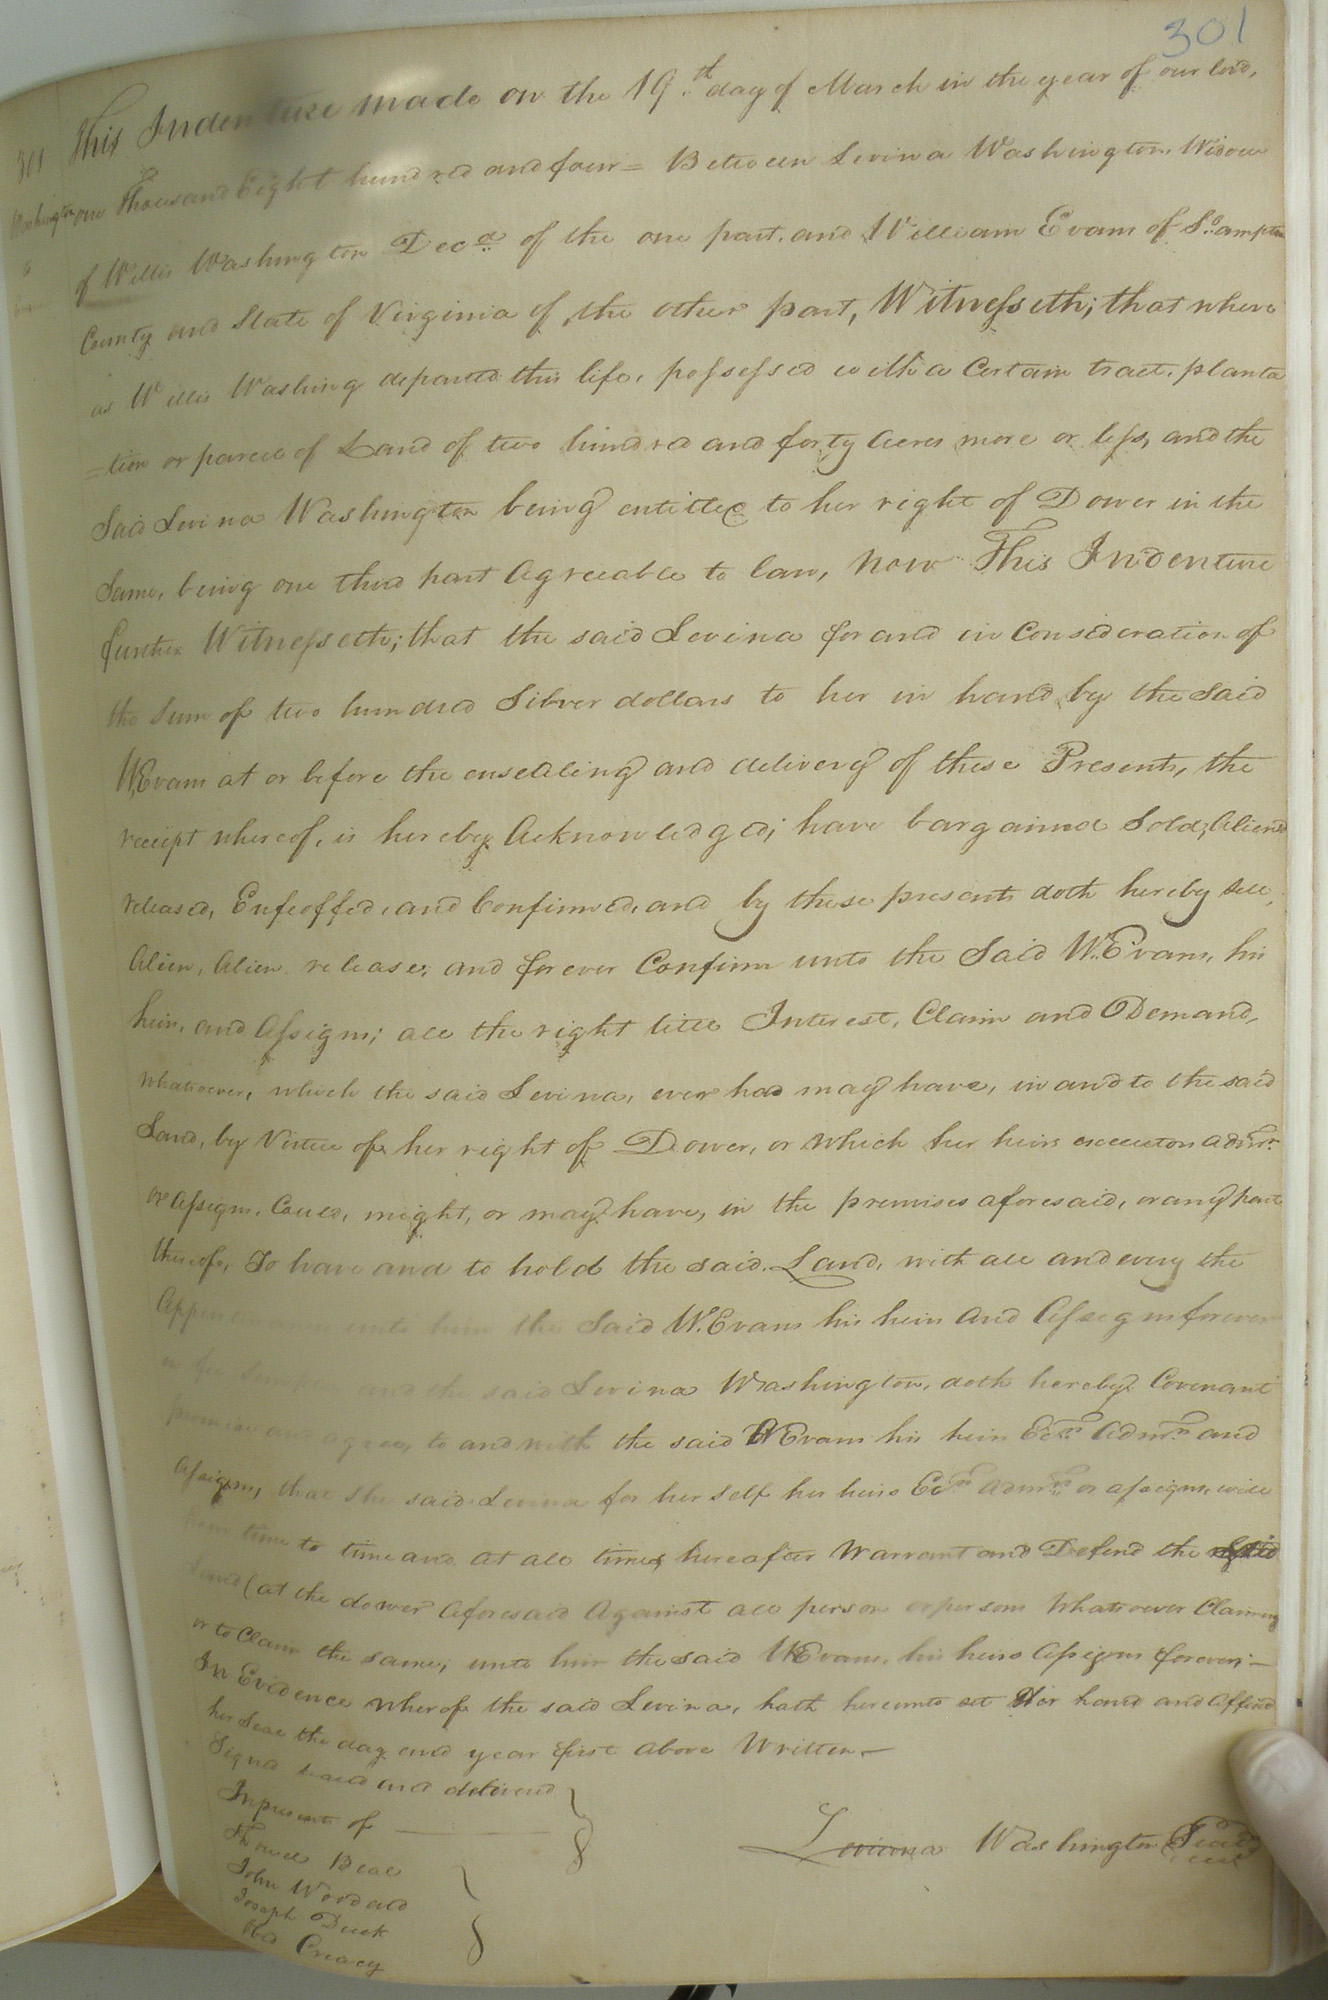 301
This Indenture made on the 19th day of March in the year of our lord,
301
Washington
one Thousand Eight hundred and four = Between Levina Washington Widow
of Willis Washington Decd of the one part, and William Evans of So.ampton
County and State of Virginia of the other part, Witnesseth; that where
as Willis Washing departed this life, possessed with a Certain tract, planta
=tion or parcel of Land of two hundred and forty Acres more or less, and the
Said Levina Washington being entitled to her right of Dower in the
Same, being one third part Agreeable to law, now This Indenture
further Witnesseth; that the said Levina for and in Consideration of
the Sum of two hundred Silver dollars to her in hand by the Said
W.Evans at or before the ensealing and delivery of these Presents, the
receipt whereof, is hereby Acknowledged; have bargained Sold, Aliened
released, Enfeoffed, and Confirmed, and by these presents doth hereby sell,
Alien, Alien release, and forever Confirm unto the Said W.Evans, his
heirs, and Assigns; all the right title Interest, Claim and Demand,
Whatsoever, which the said Levina, ever had may have, in and to the said
Land, by Virtue of her right of Dower, or which her heirs executors admrs.
or Assigns. Could, might, or may have, in the premises aforesaid, or any part
thereof, To have and to hold the said Land, with all and every the
unto him the Said W.Evans his heirs and Assigns forever
in fee Simple and the said Levina Washington, doth hereby Covenant
promise and agree, to and with the said W Evans his heirs Ecrs Admrs and
Assigns, that she said Levina for her self her heirs Ecrs Admrs or assigns, will
from time to time and at all times hereafter Warrant and Defend the said
Land (at the dower Aforesaid Against all person or persons Whatsoever Claiming
or to Claim the same; unto him the said W Evans, his heirs Assigns forever;—
In Evidence wherof the said Levina, hath hereunto set Her hand and Affixed
her Seal the day and year first above Written—
Signd seald and deliverd
In presents of
Beal
John Woodard
Joseph Duck
Creacy
Washington Seal